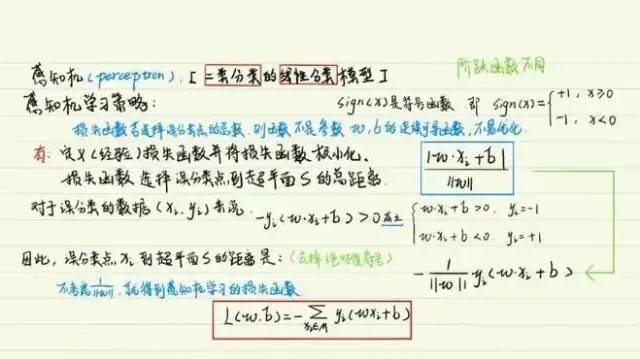 感知机(perceptron).【二类分类的线性分类模型】
阶跃函数不同
感知机学习策略:
sign(x)是符号函数 即 sign(x)={+1, x≥0
-1, x<0
损失函数若选择误分类点的总数,则函数不是参数 w,b的连续可导函数,不易优化.
定义(经验)损失函数并将损失函数极小化.
损失函数选择误分类点到超平面S的总距离.
|w·xi+b|
||w||
对于误分类的数据(xi,yi)来说. -yi(w·xi+b)>0 { w·xi+b>0. yi=-1
w·xi+b<0. yi=+1
因此,误分类点xi到超平面S的距离是:(去掉绝对值符号)
-1/||w|| yi(w·xi+b)
不考虑1/||w||,就得到感知机学习的损失函数
L(w.b)=-∑xi∈M yi(wxi+b)